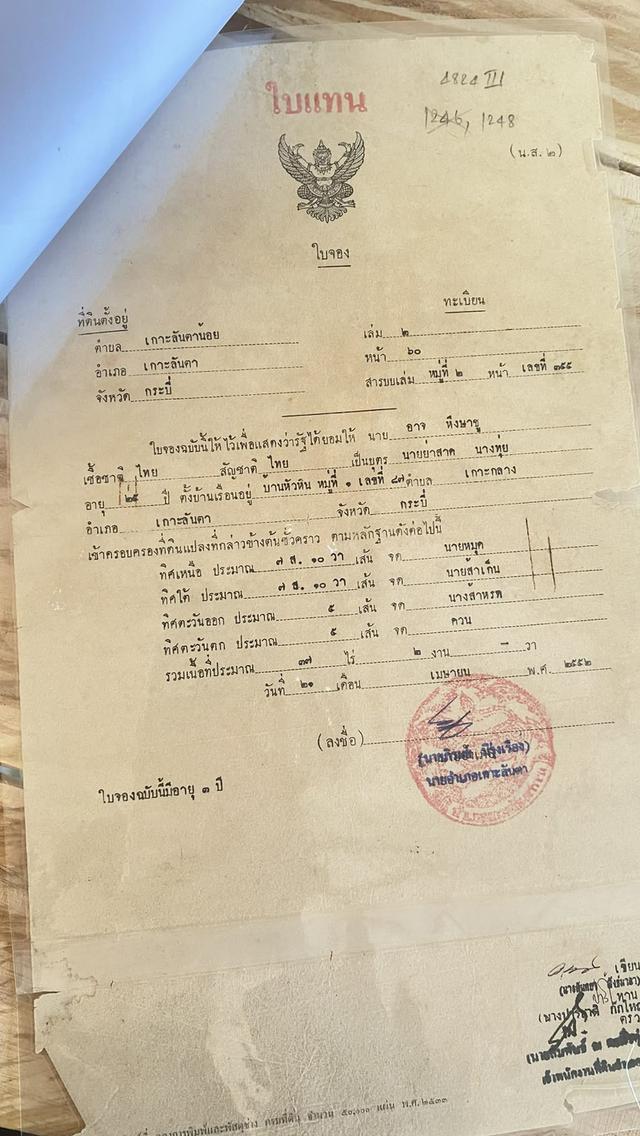 4824 III
ใบแทน
1246, 1248
(น.ส.๒)
ใบจอง
ที่ดินตั้งอยู่
ทะเบียน
ตำบล เกาะลันตาน้อย
เล่ม ๒
อำเภอ เกาะลันตา
หน้า ๖๐
จังหวัด กระบี่
สารบบเล่ม หมู่ที่ ๒ หน้า เลขที่ ๓๕๕
ใบจองฉบับนี้ให้ไว้เพื่อแสดงว่ารัฐได้ยอมให้ นาย อาจ หึงษาชู
เชื้อชาติ ไทย สัญชาติ ไทย เป็นบุตร นายย่าสาด นางทุ่ย
อายุ ๒๕ ปี ตั้งบ้านเรือนอยู่ บ้านหัวหิน หมู่ที่ ๑ เลขที่ ๘๗ ตำบล เกาะกลาง
อำเภอ เกาะลันตา จังหวัด กระบี่
เข้าครอบครองที่ดินแปลงที่กล่าวข้างต้นชั่วคราว ตามหลักฐานดังต่อไปนี้
ทิศเหนือ ประมาณ ๗ ส. ๑๐ วา เส้น จด นายหมุด
ทิศใต้ ประมาณ ๗ ส. ๑๐ วา เส้น จด นายส้าเก็น
ทิศตะวันออก ประมาณ ๕ เส้น จด นางส้าหรด
ทิศตะวันตก ประมาณ ๕ เส้น จด ควน
รวมเนื้อที่ประมาณ ๓๗ ไร่ ๒ งาน - วา
วันที่ ๒๑ เดือน เมษายน พ.ศ. ๒๕๕๒
(ลงชื่อ)
นายอำเภอเกาะลันตา
ใบจองฉบับนี้มีอายุ ๓ ปี
เขียน
ทาน
ตรวจ
กองการพิมพ์และพัสดุช่าง กรมที่ดิน จำนวน ๕๐,๐๐๐ แผ่น พ.ศ.๒๕๓๓